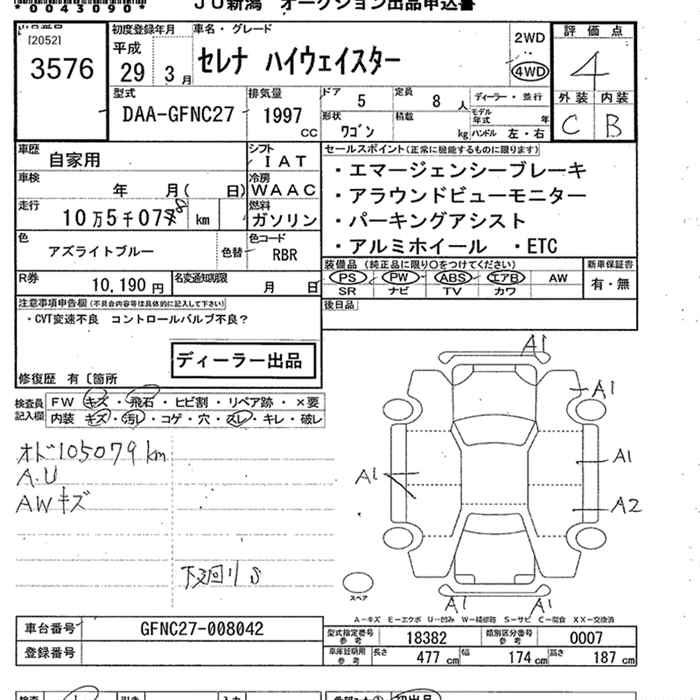 *0043090*
JU新潟 オークション出品申込書
[2052]
3576
初度登録年月
平成
29年 3月
車名・グレード
セレナ ハイウェイスター
2WD
4WD
評価点
4
外装 内装
C B
型式
DAA-GFNC27
排気量
1997
CC
ドア 5
定員 8人
ディーラー・並行
形状
ワゴン
積載
kg
モデル年式 年
ハンドル 左・右
車歴
自家用
シフト
IAT
車検
年 月( 日)
冷房
WAAC
走行
10万5千079
km
燃料
ガソリン
色
アズライトブルー
色替
色コード
RBR
R券
10,190円
名変通知期限
月 日
セールスポイント(正常に機能するものに限ります)
・エマージェンシーブレーキ
・アラウンドビューモニター
・パーキングアシスト
・アルミホイール ・ETC
装備品(純正品に限り○をつけてください)
PS PW ABS エアB AW
SR ナビ TV カワ
新車保証書
有・無
後日品
注意事項申告欄(不具合内容等は具体的に記入して下さい)
・CVT変速不良 コントロールバルブ不良?
ディーラー出品
修復歴 有 [箇所
検査員記入欄
FW キズ・飛石・ヒビ割・リペア跡・×要
内装・キズ・汚レ・コゲ・穴・スレ・キレ・破レ
オド105079km
A.U
AWキズ
下廻りS
A1
A1
A1
A1
A2
A1
A1
スペア
A-キズ E-エクボ U-凹み W-補修跡 S-サビ C-腐食 XX-交換済
車台番号
GFNC27-008042
登録番号
型式指定番号
参考
18382
類別区分番号
参考
0007
車庫証明用
参考
長さ 477cm
幅 174cm
高さ 187cm